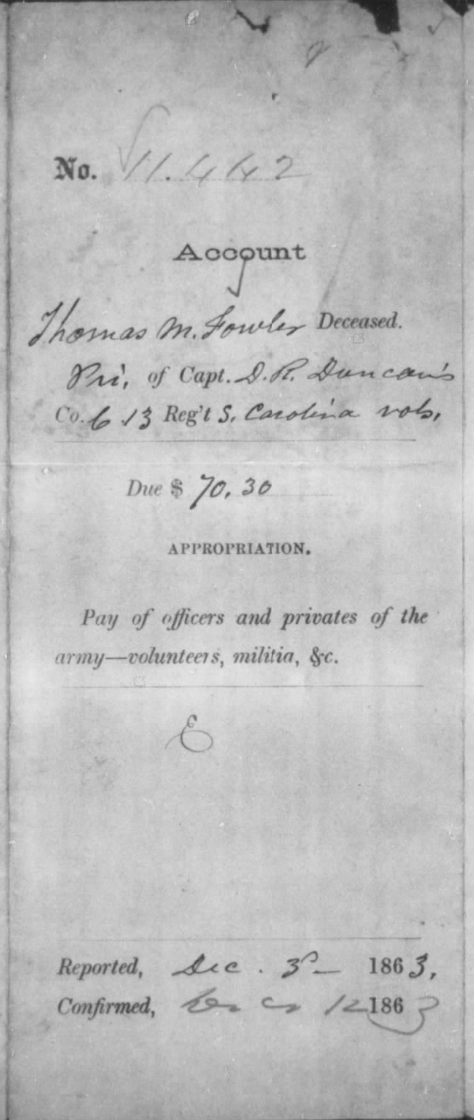 No. 11.442
Account
Thomas M. Fowler Deceased.
Pri, of Capt. D. R. Duncan's
Co. C 13 Reg't S. Carolina vols,
Due $ 70.30
APPROPRIATION.
Pay of officers and privates of the
army—volunteers, militia, &c.
E
Reported, Dec. 3 1863,
Confirmed, Dec 12 1863